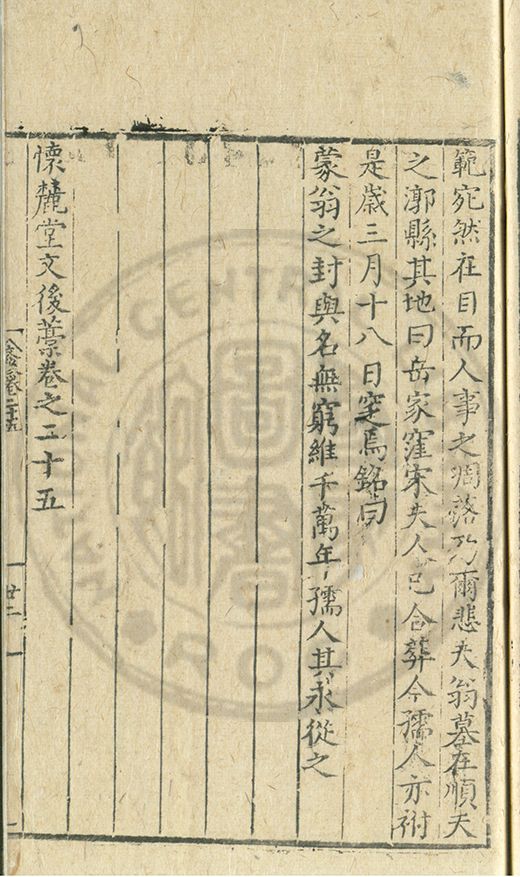 範宛然在目而人事之凋落乃爾悲夫翁墓在順天
之漷縣其地曰岳家窪宋夫人已合葬今孺人亦祔
是歲三月十八日窆焉銘曰
蒙翁之封與名無窮維千萬年孺人其永從之
懷麓堂文後藁卷之二十五
廿二